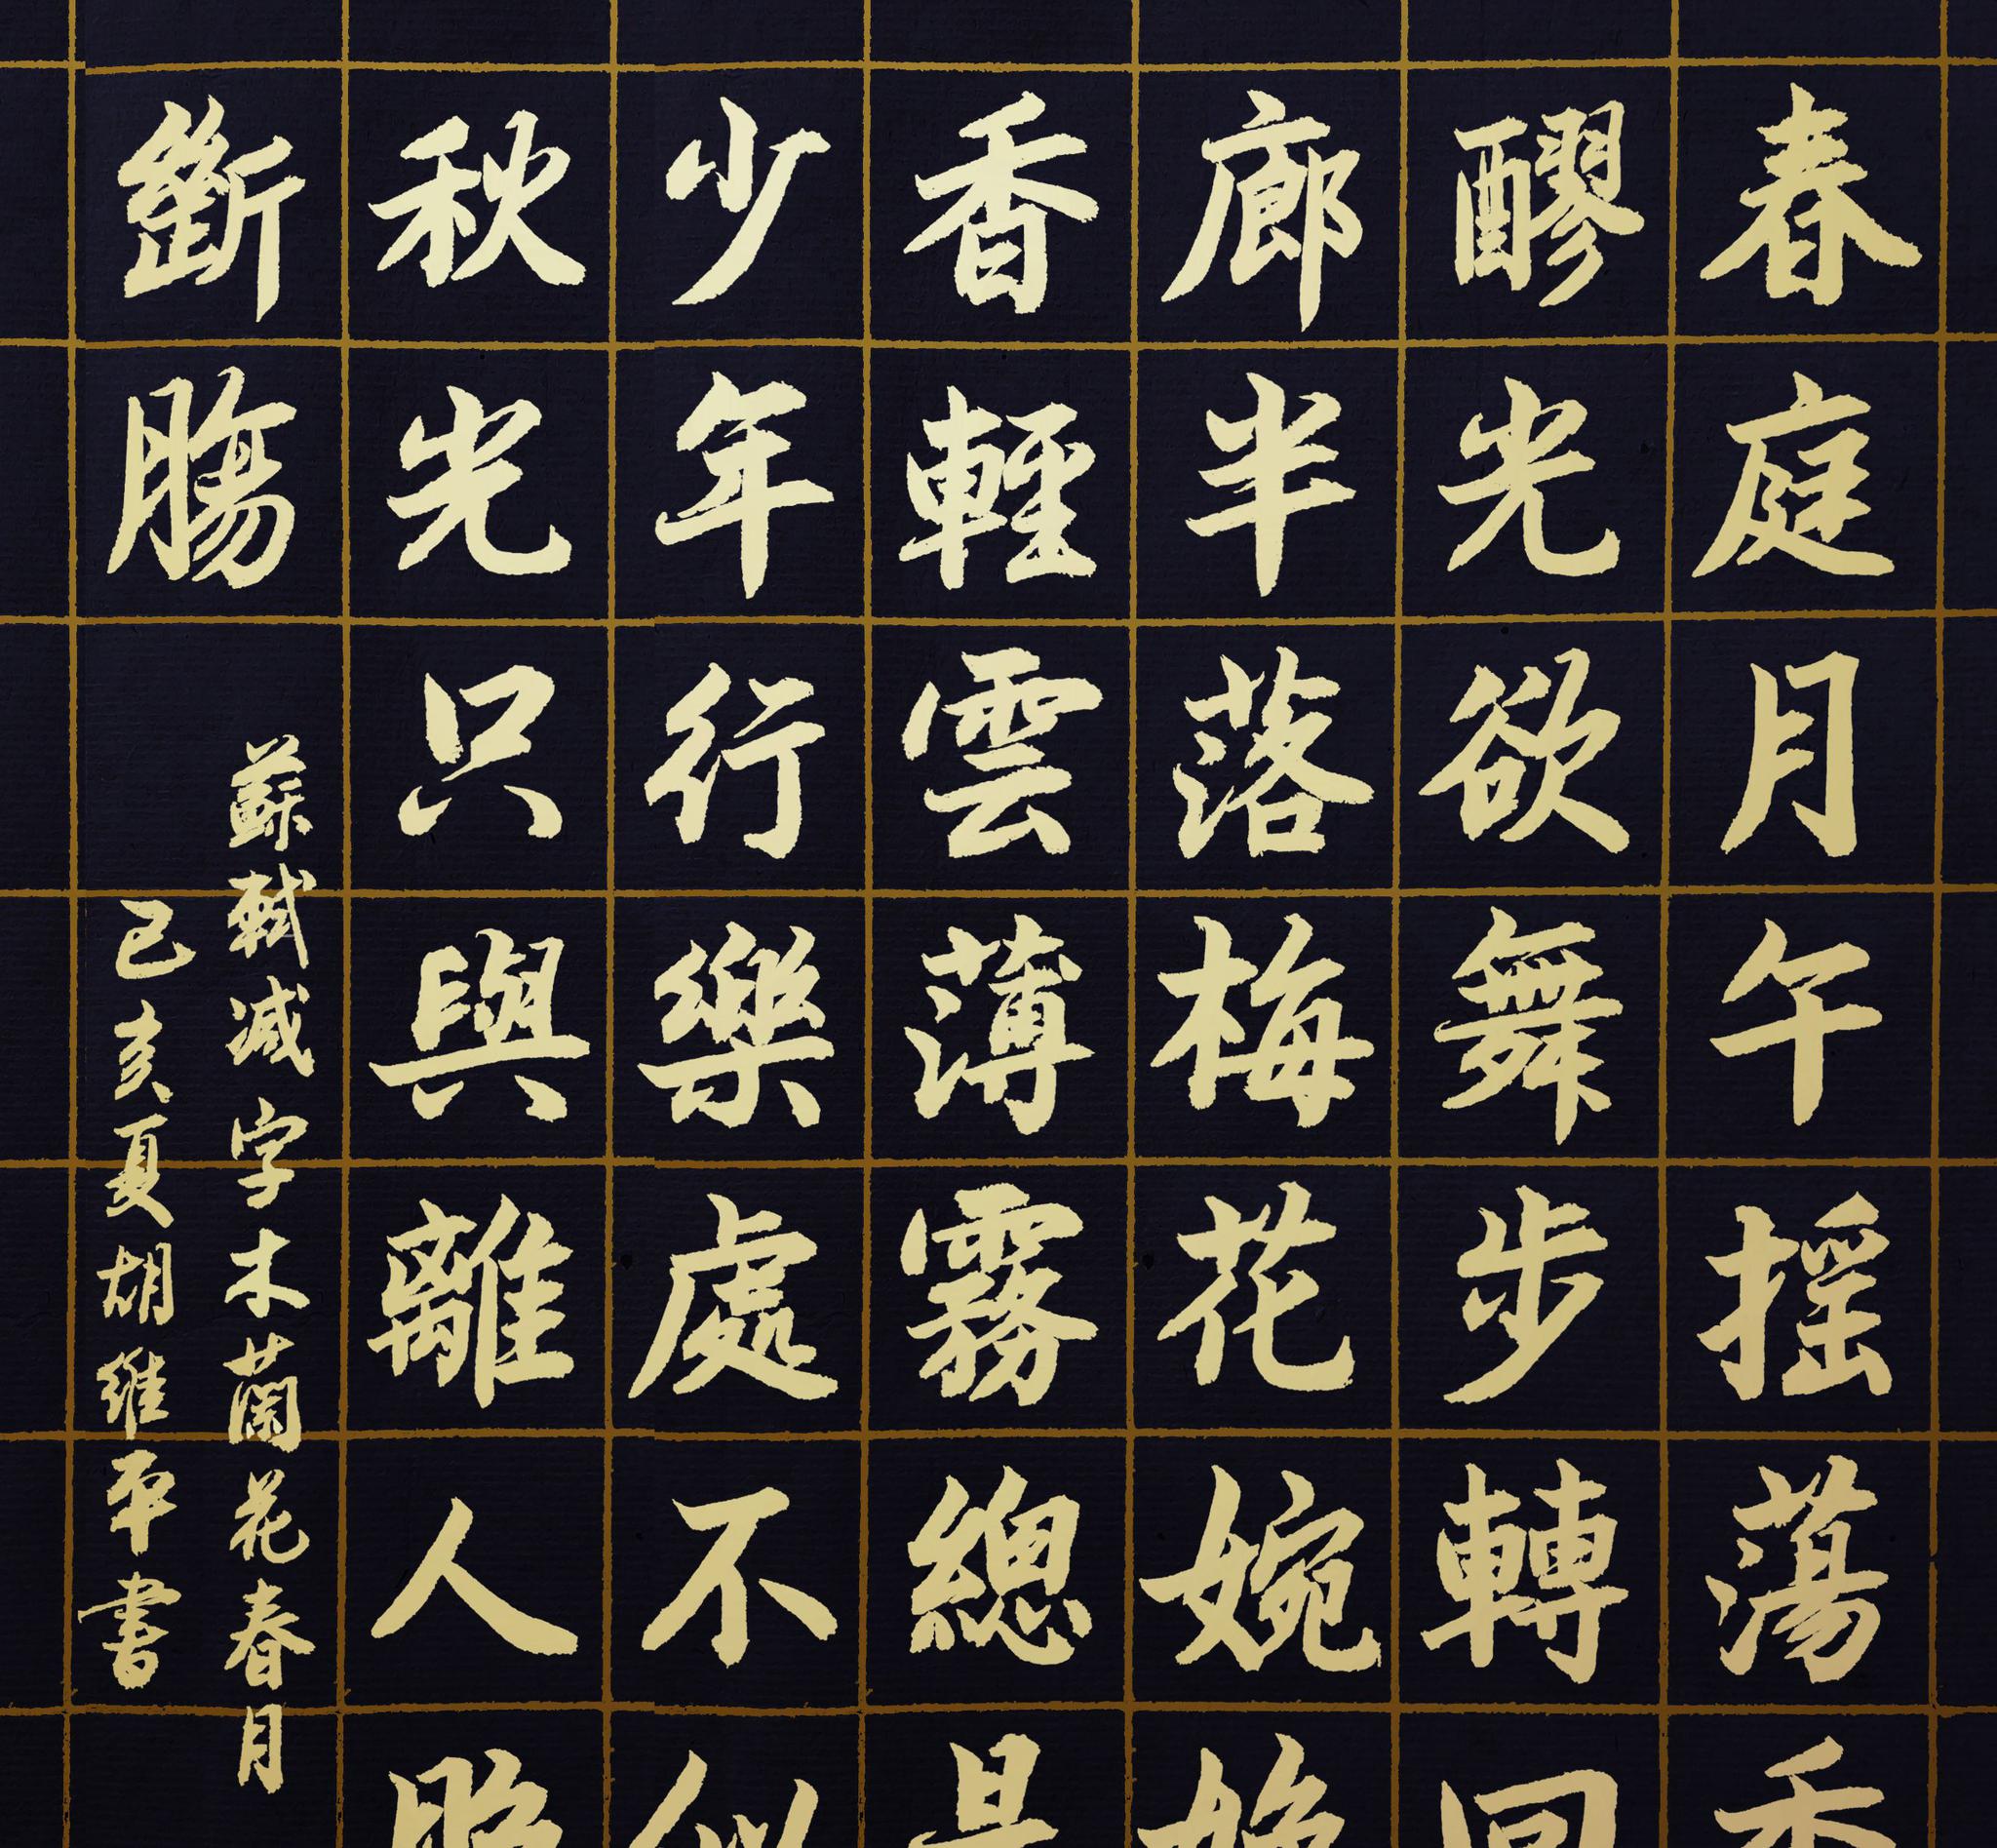 春庭月午摇蕩香
醪光欲舞步轉回
廊半落梅花婉娩
香輕雲薄霧總是
少年行樂處不似
秋光只與離人照
斷腸
蘇軾减字木蘭花春月
己亥夏胡维平書